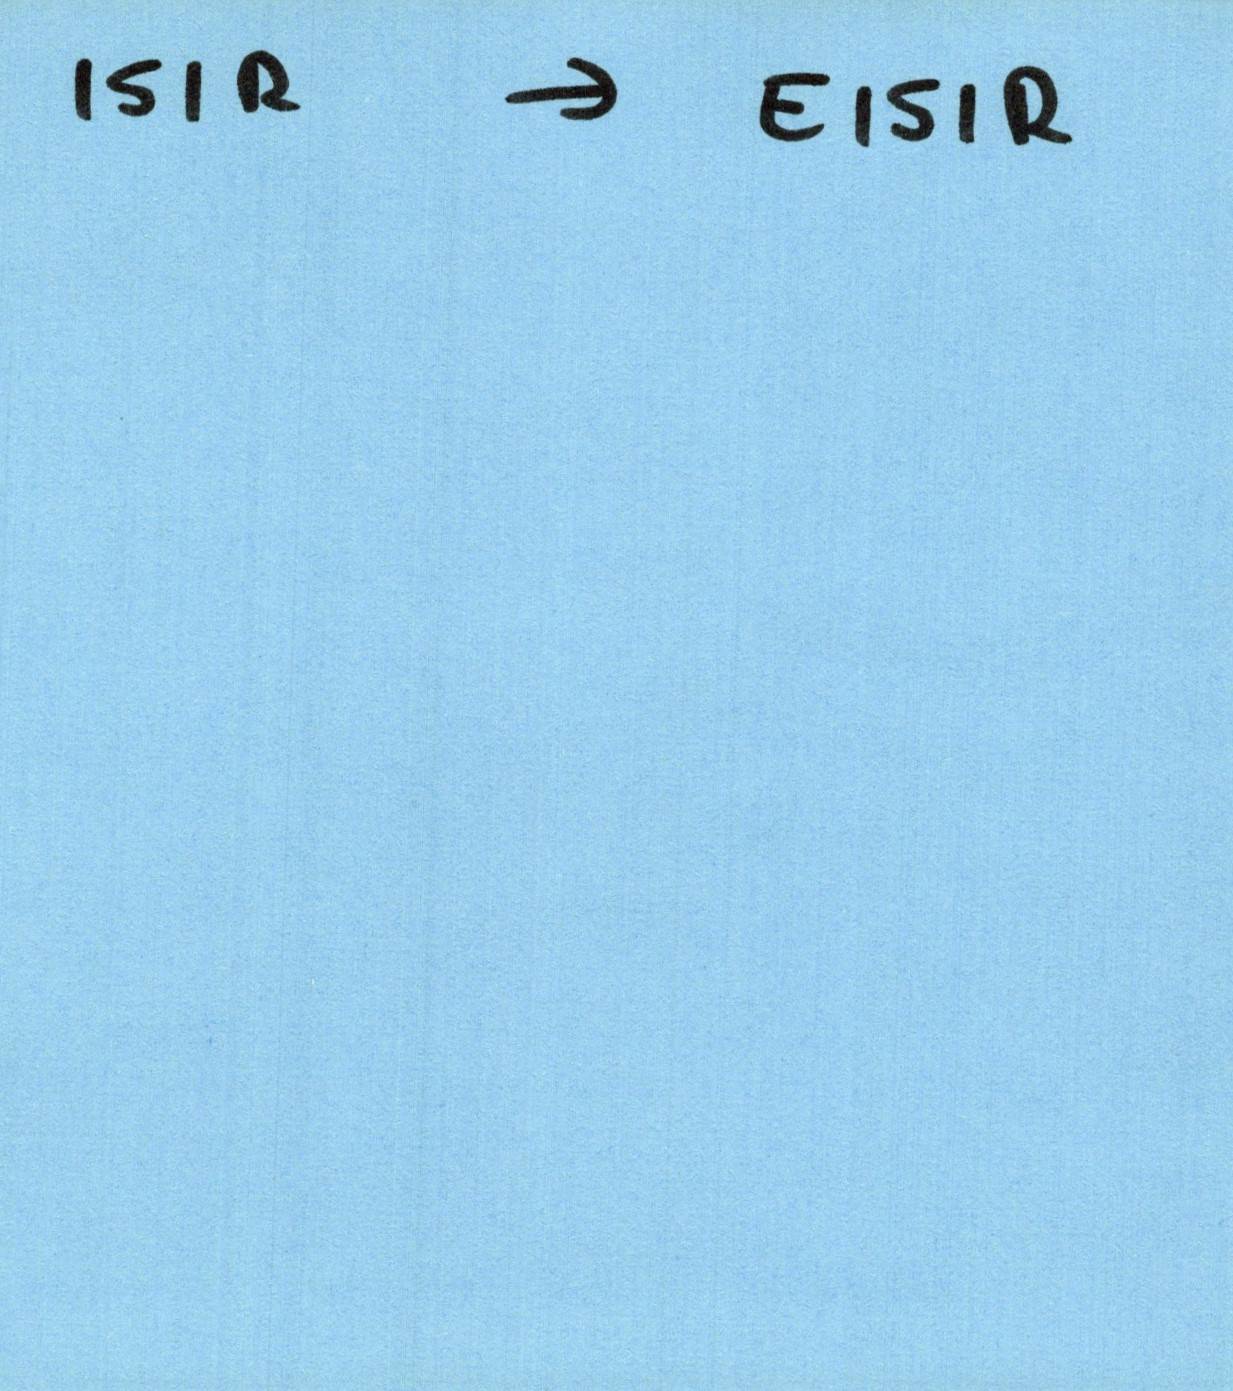 ISIR → EISIR